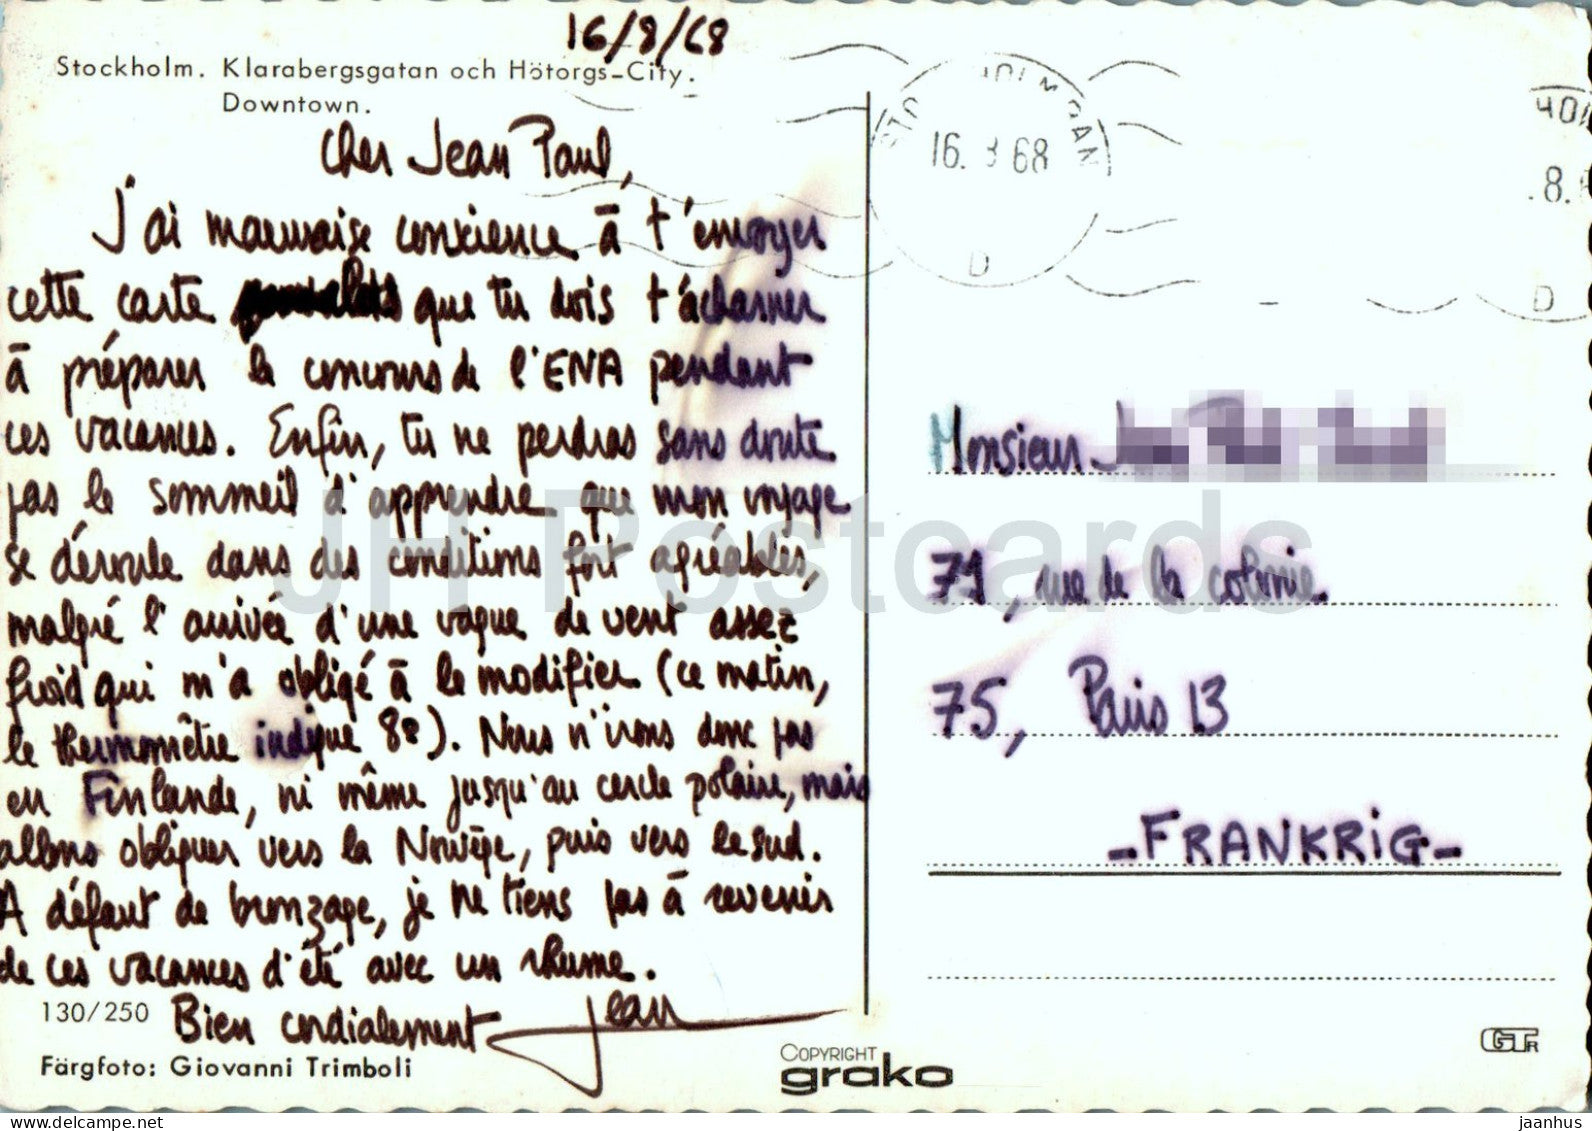 16/8/68
Stockholm. Klarabergsgatan och Hötorgs-City.
Downtown.
Cher Jean Paul,
J'ai mauvaise conscience à t'envoyer
cette carte que tu dois t'acharner
à préparer le concours de l'ENA pendant
ces vacances. Enfin, tu ne perdras sans doute
pas le sommeil d'apprendre que mon voyage
se déroule dans des conditions fort agréables,
malgré l'arrivée d'une vague de vent assez
froid qui m'a obligé à le modifier (ce matin,
le thermomètre indique 8°). Nous n'irons donc pas
en Finlande, ni même jusqu'au cercle polaire, mais
allons obliquer vers la Norvège, puis vers le sud.
A défaut de bronzage, je ne tiens pas à revenir
de ces vacances d'été avec un rhume.
Bien cordialement Jean
130/250
Färgfoto: Giovanni Trimboli
COPYRIGHT
grako
16. 8 68
D
8.
D
Monsieur
71, rue de la colonie.
75, Paris 13
-FRANKRIG-
GTr
JH Postcards
jaanhus